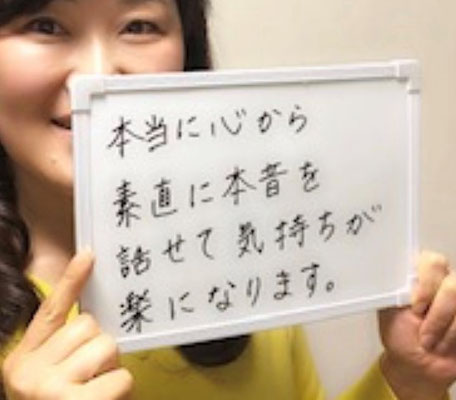 本当に心から
素直に本音を
話せて気持ちが
楽になります。